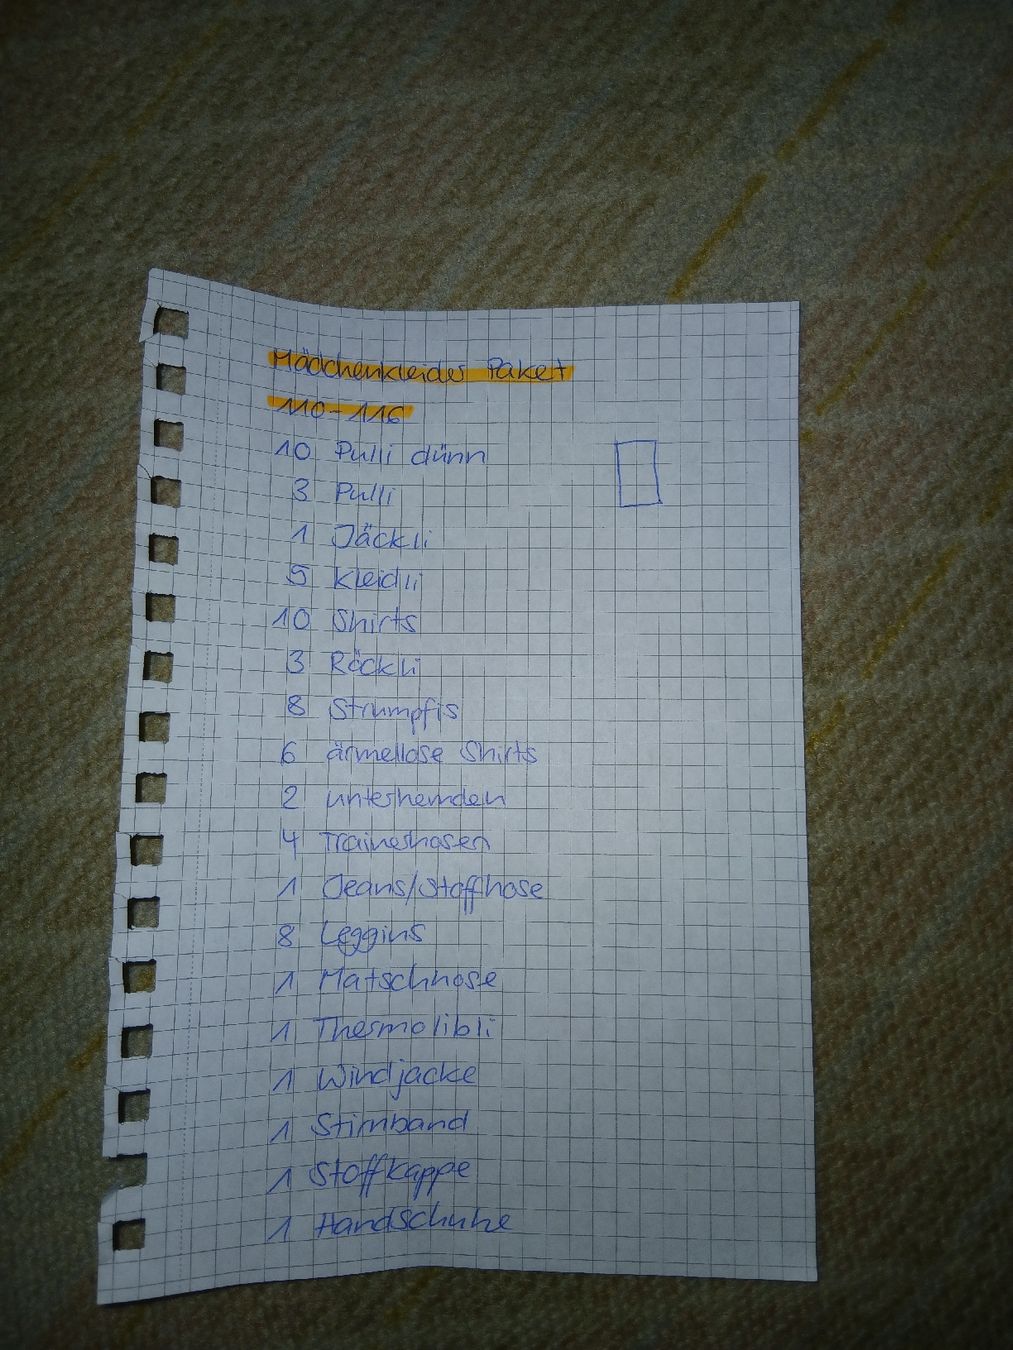 Mädchenkleider Paket
110-116
10 Pulli dünn
3 Pulli
1 Jäckli
5 Kleidli
10 Shirts
3 Röckli
8 Strumpfis
6 ärmellose Shirts
2 Unterhemden
4 Trainerhosen
1 Jeans/Stoffhose
8 Leggins
1 Matschhose
1 Thermolibli
1 Windjacke
1 Stirnband
1 Stoffkappe
1 Handschuhe